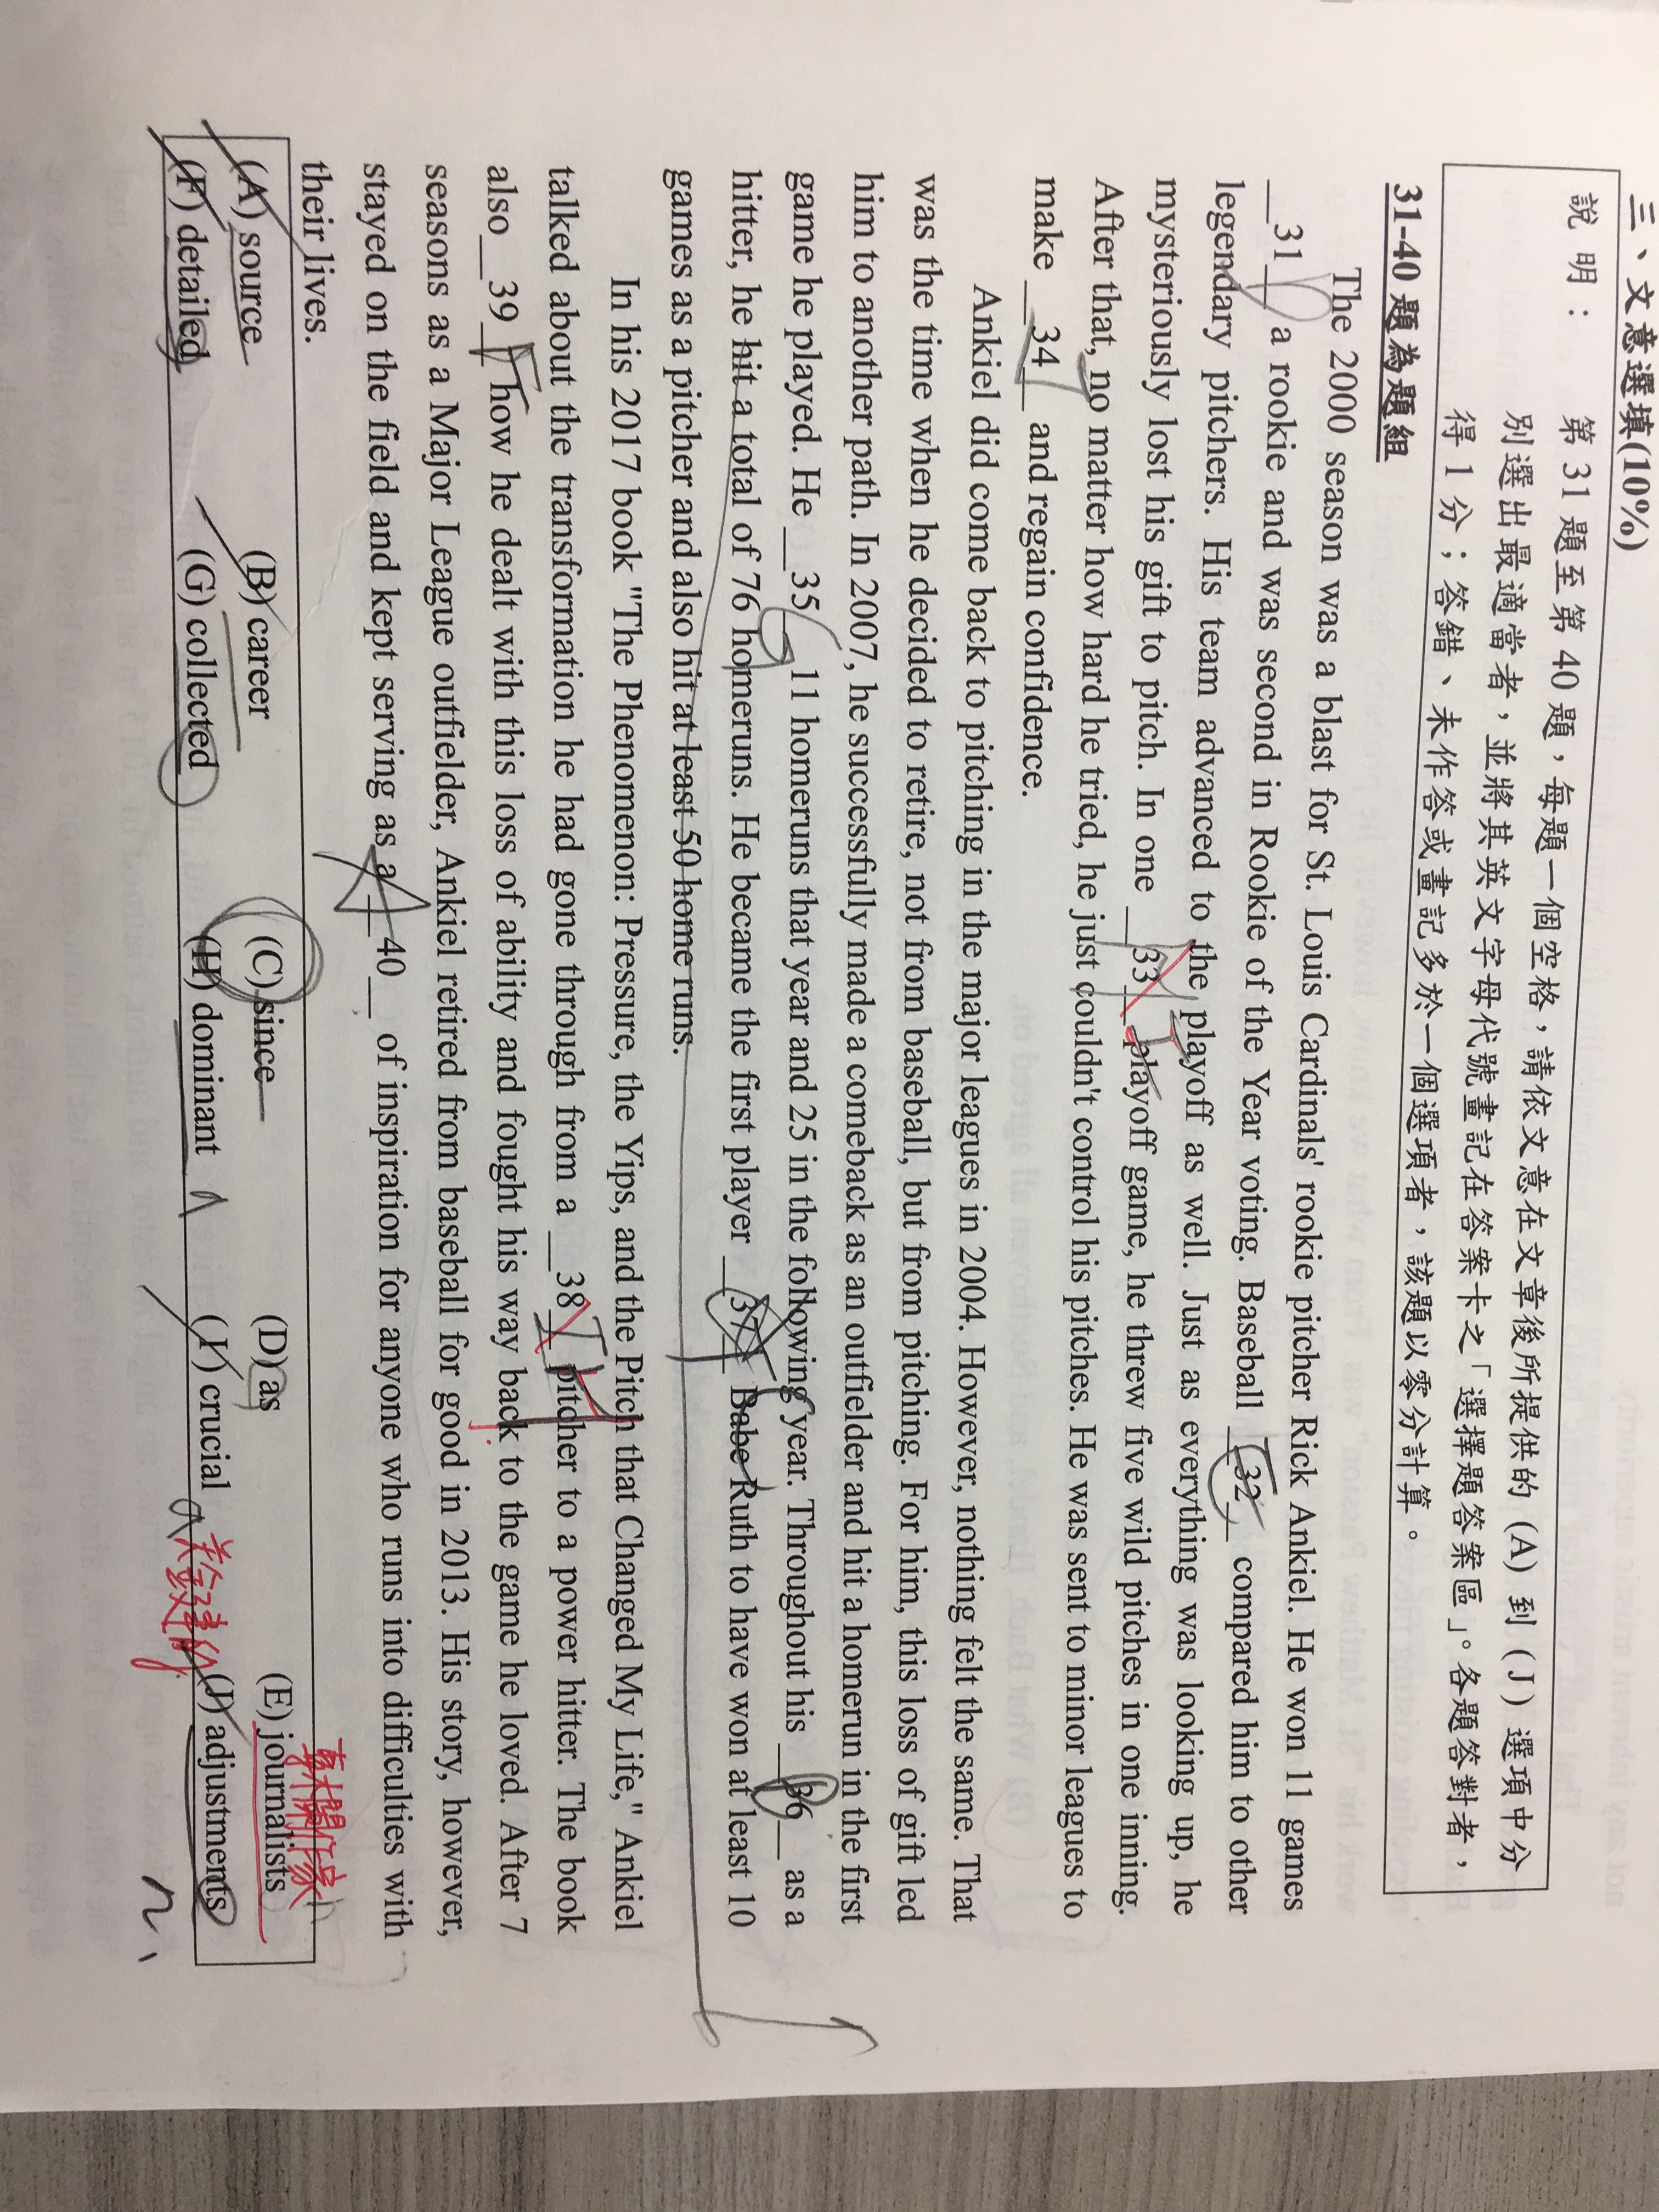 三、文意選填(10%)
說 明： 第 31 題至第 40 題，每題一個空格，請依文意在文章後所提供的 (A) 到 (J) 選項中分
別選出最適當者，並將其英文字母代號畫記在答案卡之「選擇題答案區」。各題答對者，
得 1 分；答錯、未作答或畫記多於一個選項者，該題以零分計算。
31-40 題為題組
The 2000 season was a blast for St. Louis Cardinals' rookie pitcher Rick Ankiel. He won 11 games
__31__ a rookie and was second in Rookie of the Year voting. Baseball __32__ compared him to other
legendary pitchers. His team advanced to the playoff as well. Just as everything was looking up, he
mysteriously lost his gift to pitch. In one __33__ playoff game, he threw five wild pitches in one inning.
After that, no matter how hard he tried, he just couldn't control his pitches. He was sent to minor leagues to
make __34__ and regain confidence.
Ankiel did come back to pitching in the major leagues in 2004. However, nothing felt the same. That
was the time when he decided to retire, not from baseball, but from pitching. For him, this loss of gift led
him to another path. In 2007, he successfully made a comeback as an outfielder and hit a homerun in the first
game he played. He __35__ 11 homeruns that year and 25 in the following year. Throughout his __36__ as a
hitter, he hit a total of 76 homeruns. He became the first player __37__ Babe Ruth to have won at least 10
games as a pitcher and also hit at least 50 home runs.
In his 2017 book "The Phenomenon: Pressure, the Yips, and the Pitch that Changed My Life," Ankiel
talked about the transformation he had gone through from a __38__ pitcher to a power hitter. The book
also __39__ how he dealt with this loss of ability and fought his way back to the game he loved. After 7
seasons as a Major League outfielder, Ankiel retired from baseball for good in 2013. His story, however,
stayed on the field and kept serving as a __40__ of inspiration for anyone who runs into difficulties with
their lives.
(A) source (B) career (C) since (D) as (E) journalists
(F) detailed (G) collected (H) dominant (I) crucial (J) adjustments
关鍵的